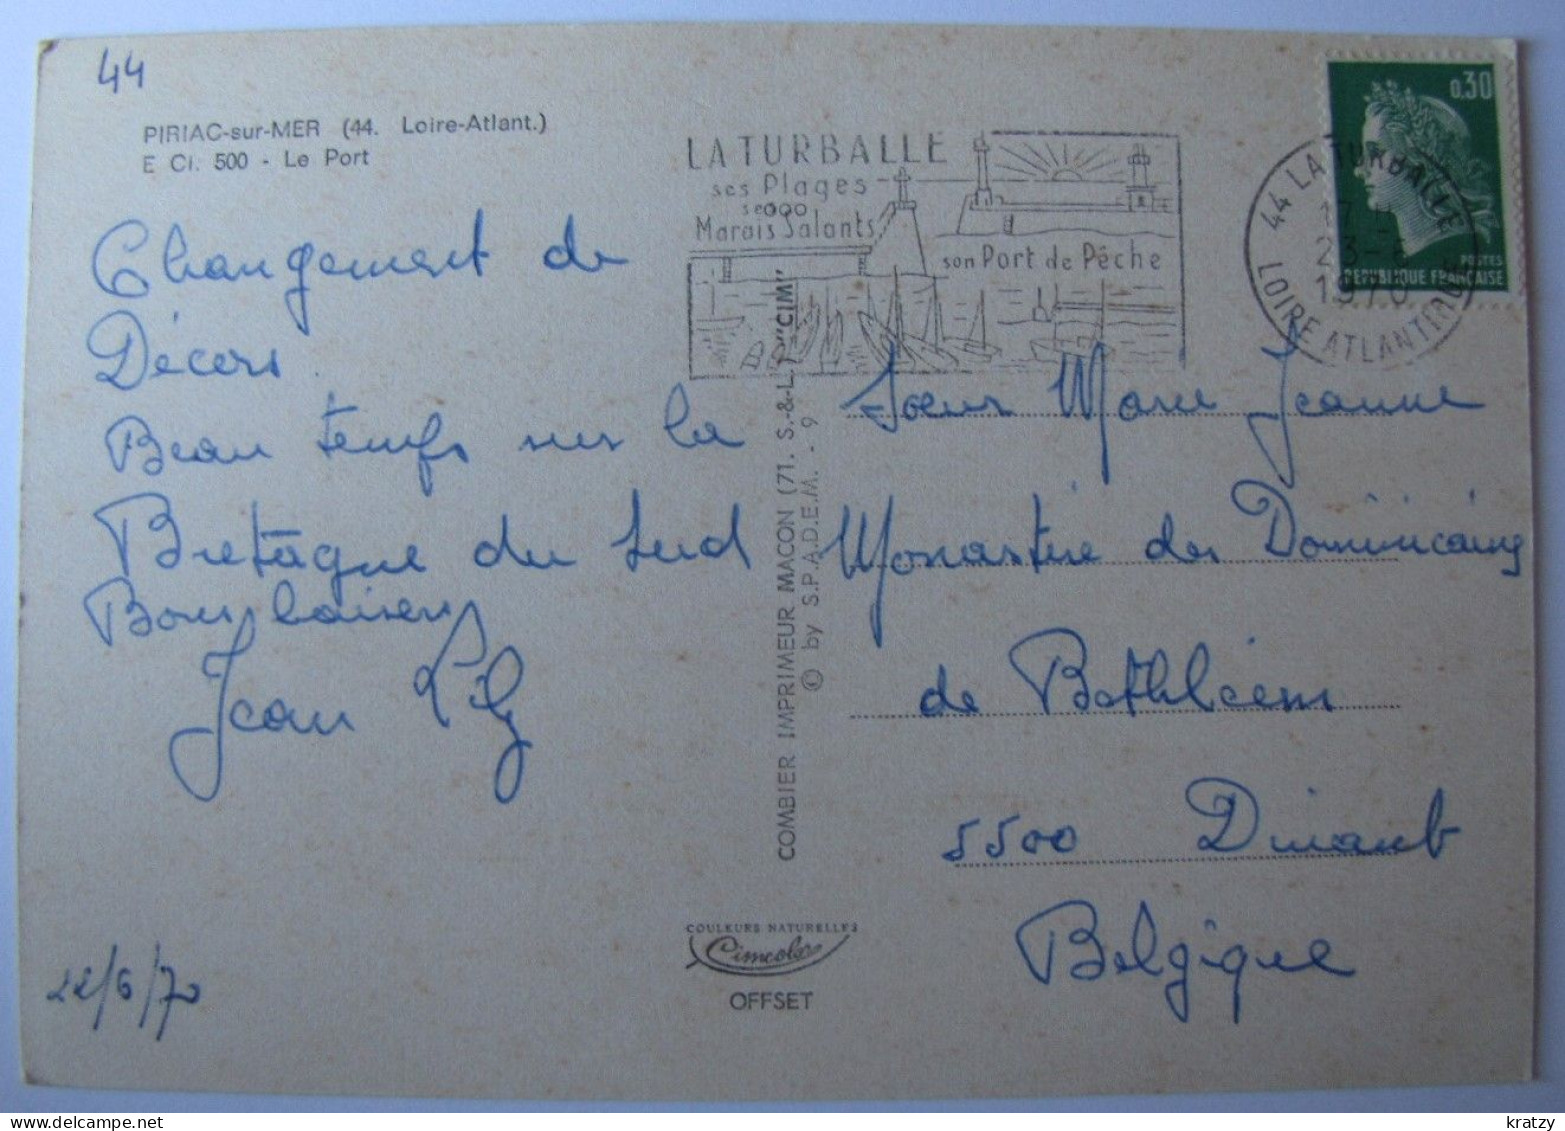 44
PIRIAC-sur-MER (44. Loire-Atlant.)
E Ci. 500 - Le Port
Changement de
Décors
Beau temps sur la
Bretagne du Sud
Bons baisers
Jean
22/6/70
LA TURBALLE
ses Plages
ses
Marais Salants
son Port de Pêche
0,30
POSTES
REPUBLIQUE FRANÇAISE
44 LA TURBALLE
17
23-6
1970
LOIRE ATLANTIQUE
COMBIER IMPRIMEUR MACON (71. S.-&-L.) "CIM"
© by S.P.A.D.E.M. - 9
Soeur Marie Jeanne
Monastère des Dominicaines
de Bethléem
5500 Dinant
Belgique
COULEURS NATURELLES
Cimcolor
OFFSET
kratzy